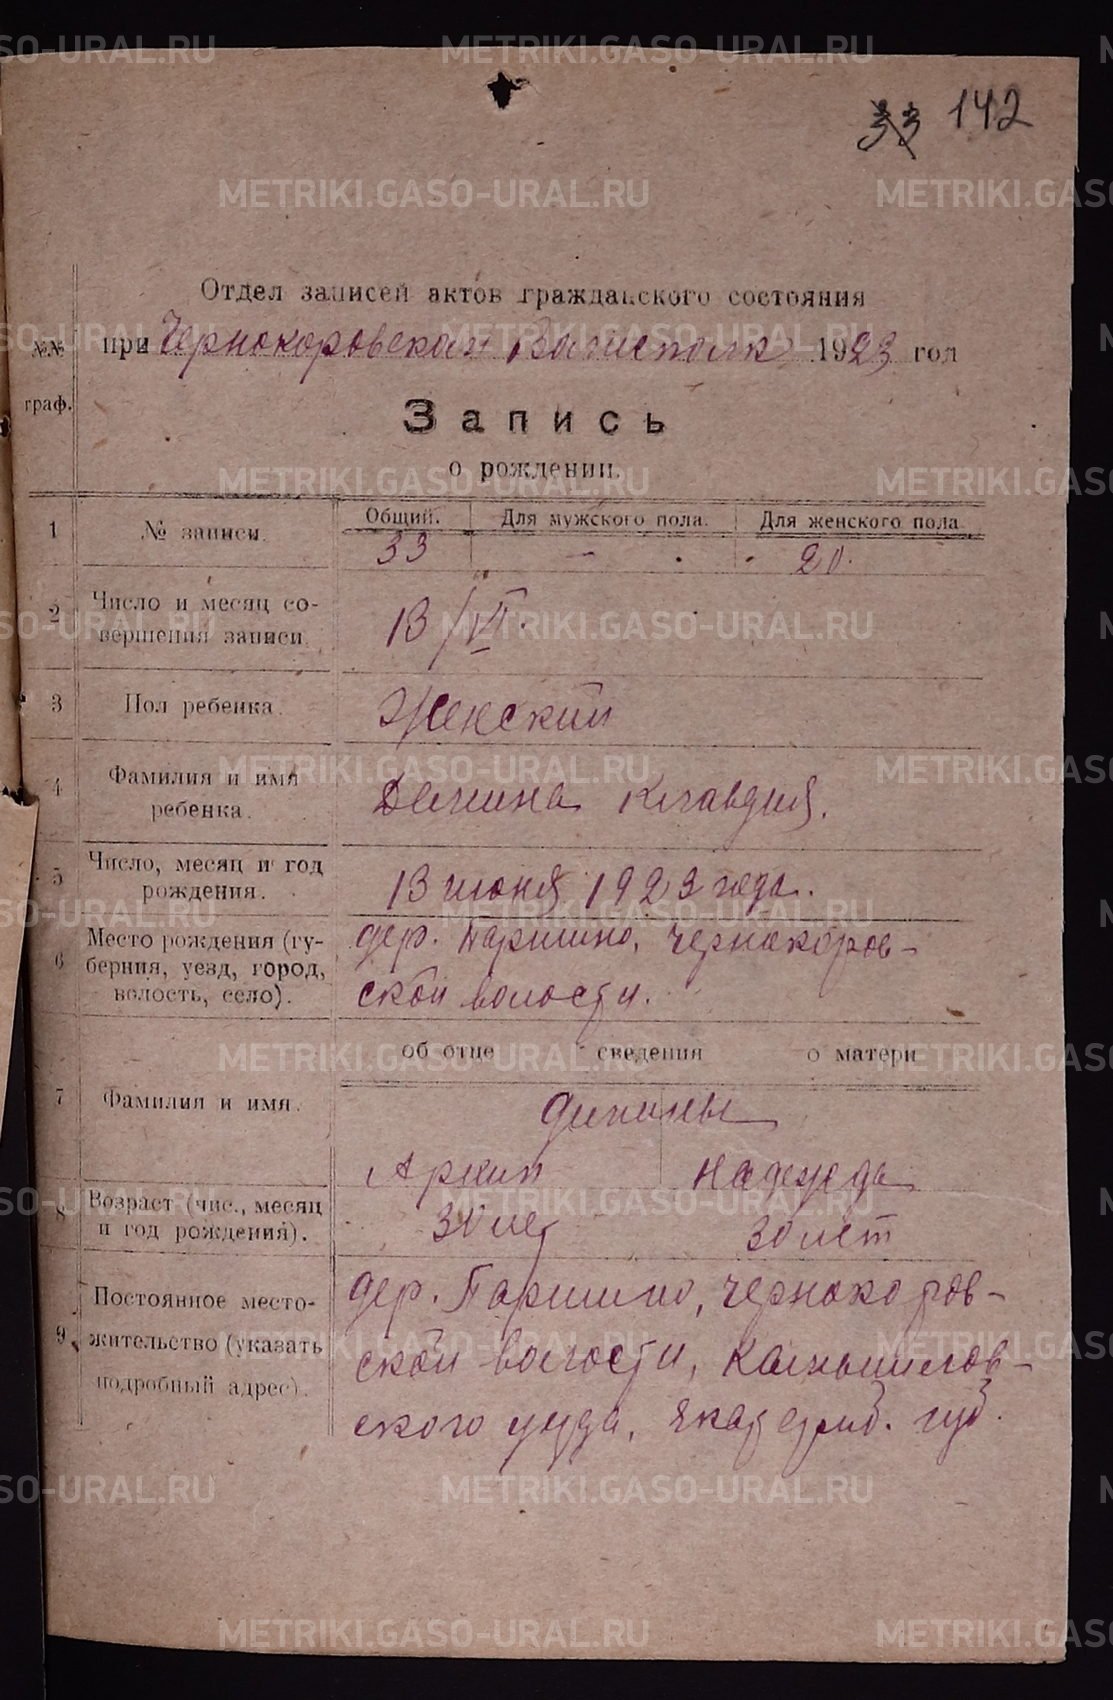 33 142
Отдел записей актов гражданского состояния
№№ при Чернокоровском Волисполк 1923 год
граф.
Запись
о рождении.
Общий. Для мужского пола. Для женского пола
1 № записи. 33 - 20.
2 Число и месяц со-
вершения записи. 13/VI.
3 Пол ребенка. Женский
4 Фамилия и имя
ребенка. Клавдия.
5 Число, месяц и год
рождения. 13 июня 1923 года.
6 Место рождения (гу-
берния, уезд, город,
волость, село).
дер. Паршино, Чернокоров-
ской волости.
об отце сведения о матери
7 Фамилия и имя.
Архип Надежда
8 Возраст (чис., месяц
и год рождения).
30 лет 30 лет
9 Постоянное место-
жительство (указать
подробный адрес).
дер. Паршино, Чернокоров-
ской волости, Камышлов-
ского уезда, Екатеринб. губ.
METRIKI.GASO-URAL.RU